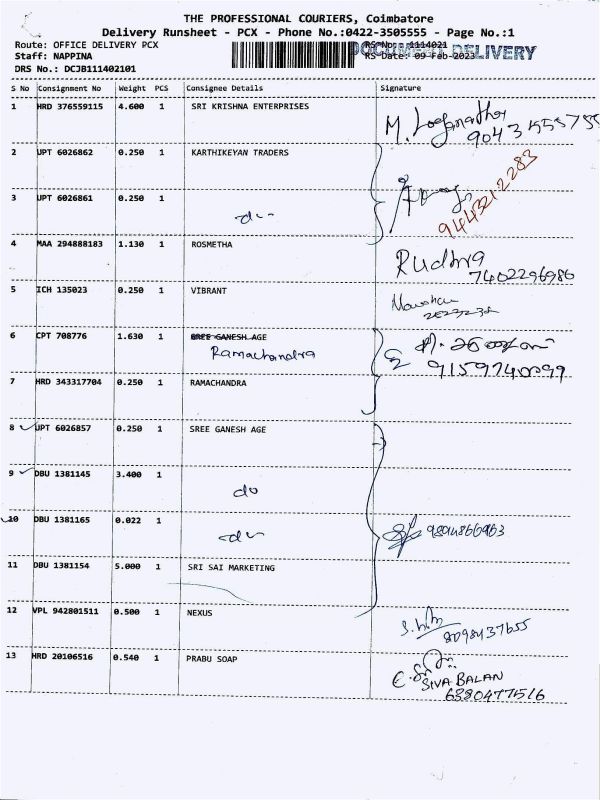 THE PROFESSIONAL COURIERS, Coimbatore
Delivery Runsheet - PCX - Phone No.:0422-3505555 - Page No.:1
Route: OFFICE DELIVERY PCX
Staff: NAPPINA
DRS No.: DCJB111402101
RS No: 1114021
RS Date: 09 Feb-2023
DOCUMENT DELIVERY
S No Consignment No Weight PCS Consignee Details Signature
1 HRD 376559115 4.600 1 SRI KRISHNA ENTERPRISES
2 UPT 6026862 0.250 1 KARTHIKEYAN TRADERS
9443212283
3 UPT 6026861 0.250 1
do
4 MAA 294888183 1.130 1 ROSMETHA
Rudhra
7402296986
5 ICH 135023 0.250 1 VIBRANT
6 CPT 708776 1.630 1 SREE GANESH AGE
Ramachandra
7 HRD 343317704 0.250 1 RAMACHANDRA
8 UPT 6026857 0.250 1 SREE GANESH AGE
9 DBU 1381145 3.400 1
do
10 DBU 1381165 0.022 1
do
11 DBU 1381154 5.000 1 SRI SAI MARKETING
12 VPL 942801511 0.500 1 NEXUS
13 HRD 20106516 0.540 1 PRABU SOAP
SIVA BALAN
6380477516